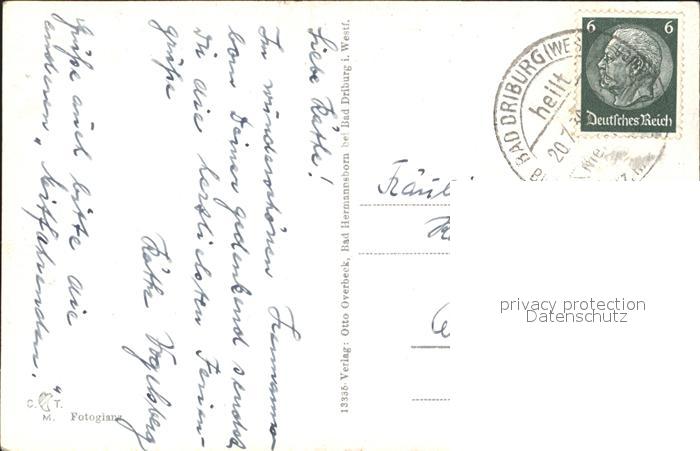 Liebe Käthe!
Im wunderschönen Hermanns-
born Deiner gedenkend sendet
Dir die herzlichsten Ferien-
grüße
Käthe Vogelsberg
Grüße auch bitte die
anderen „Mitfahrenden."
C. T.
M. Fotoglanz
13335 Verlag: Otto Overbeck, Bad Hermannsborn bei Bad Driburg i. Westf.
6 6
Deutsches Reich
BAD DRIBURG (WES
heilt
20.7.
Fräul
privacy protection
Datenschutz